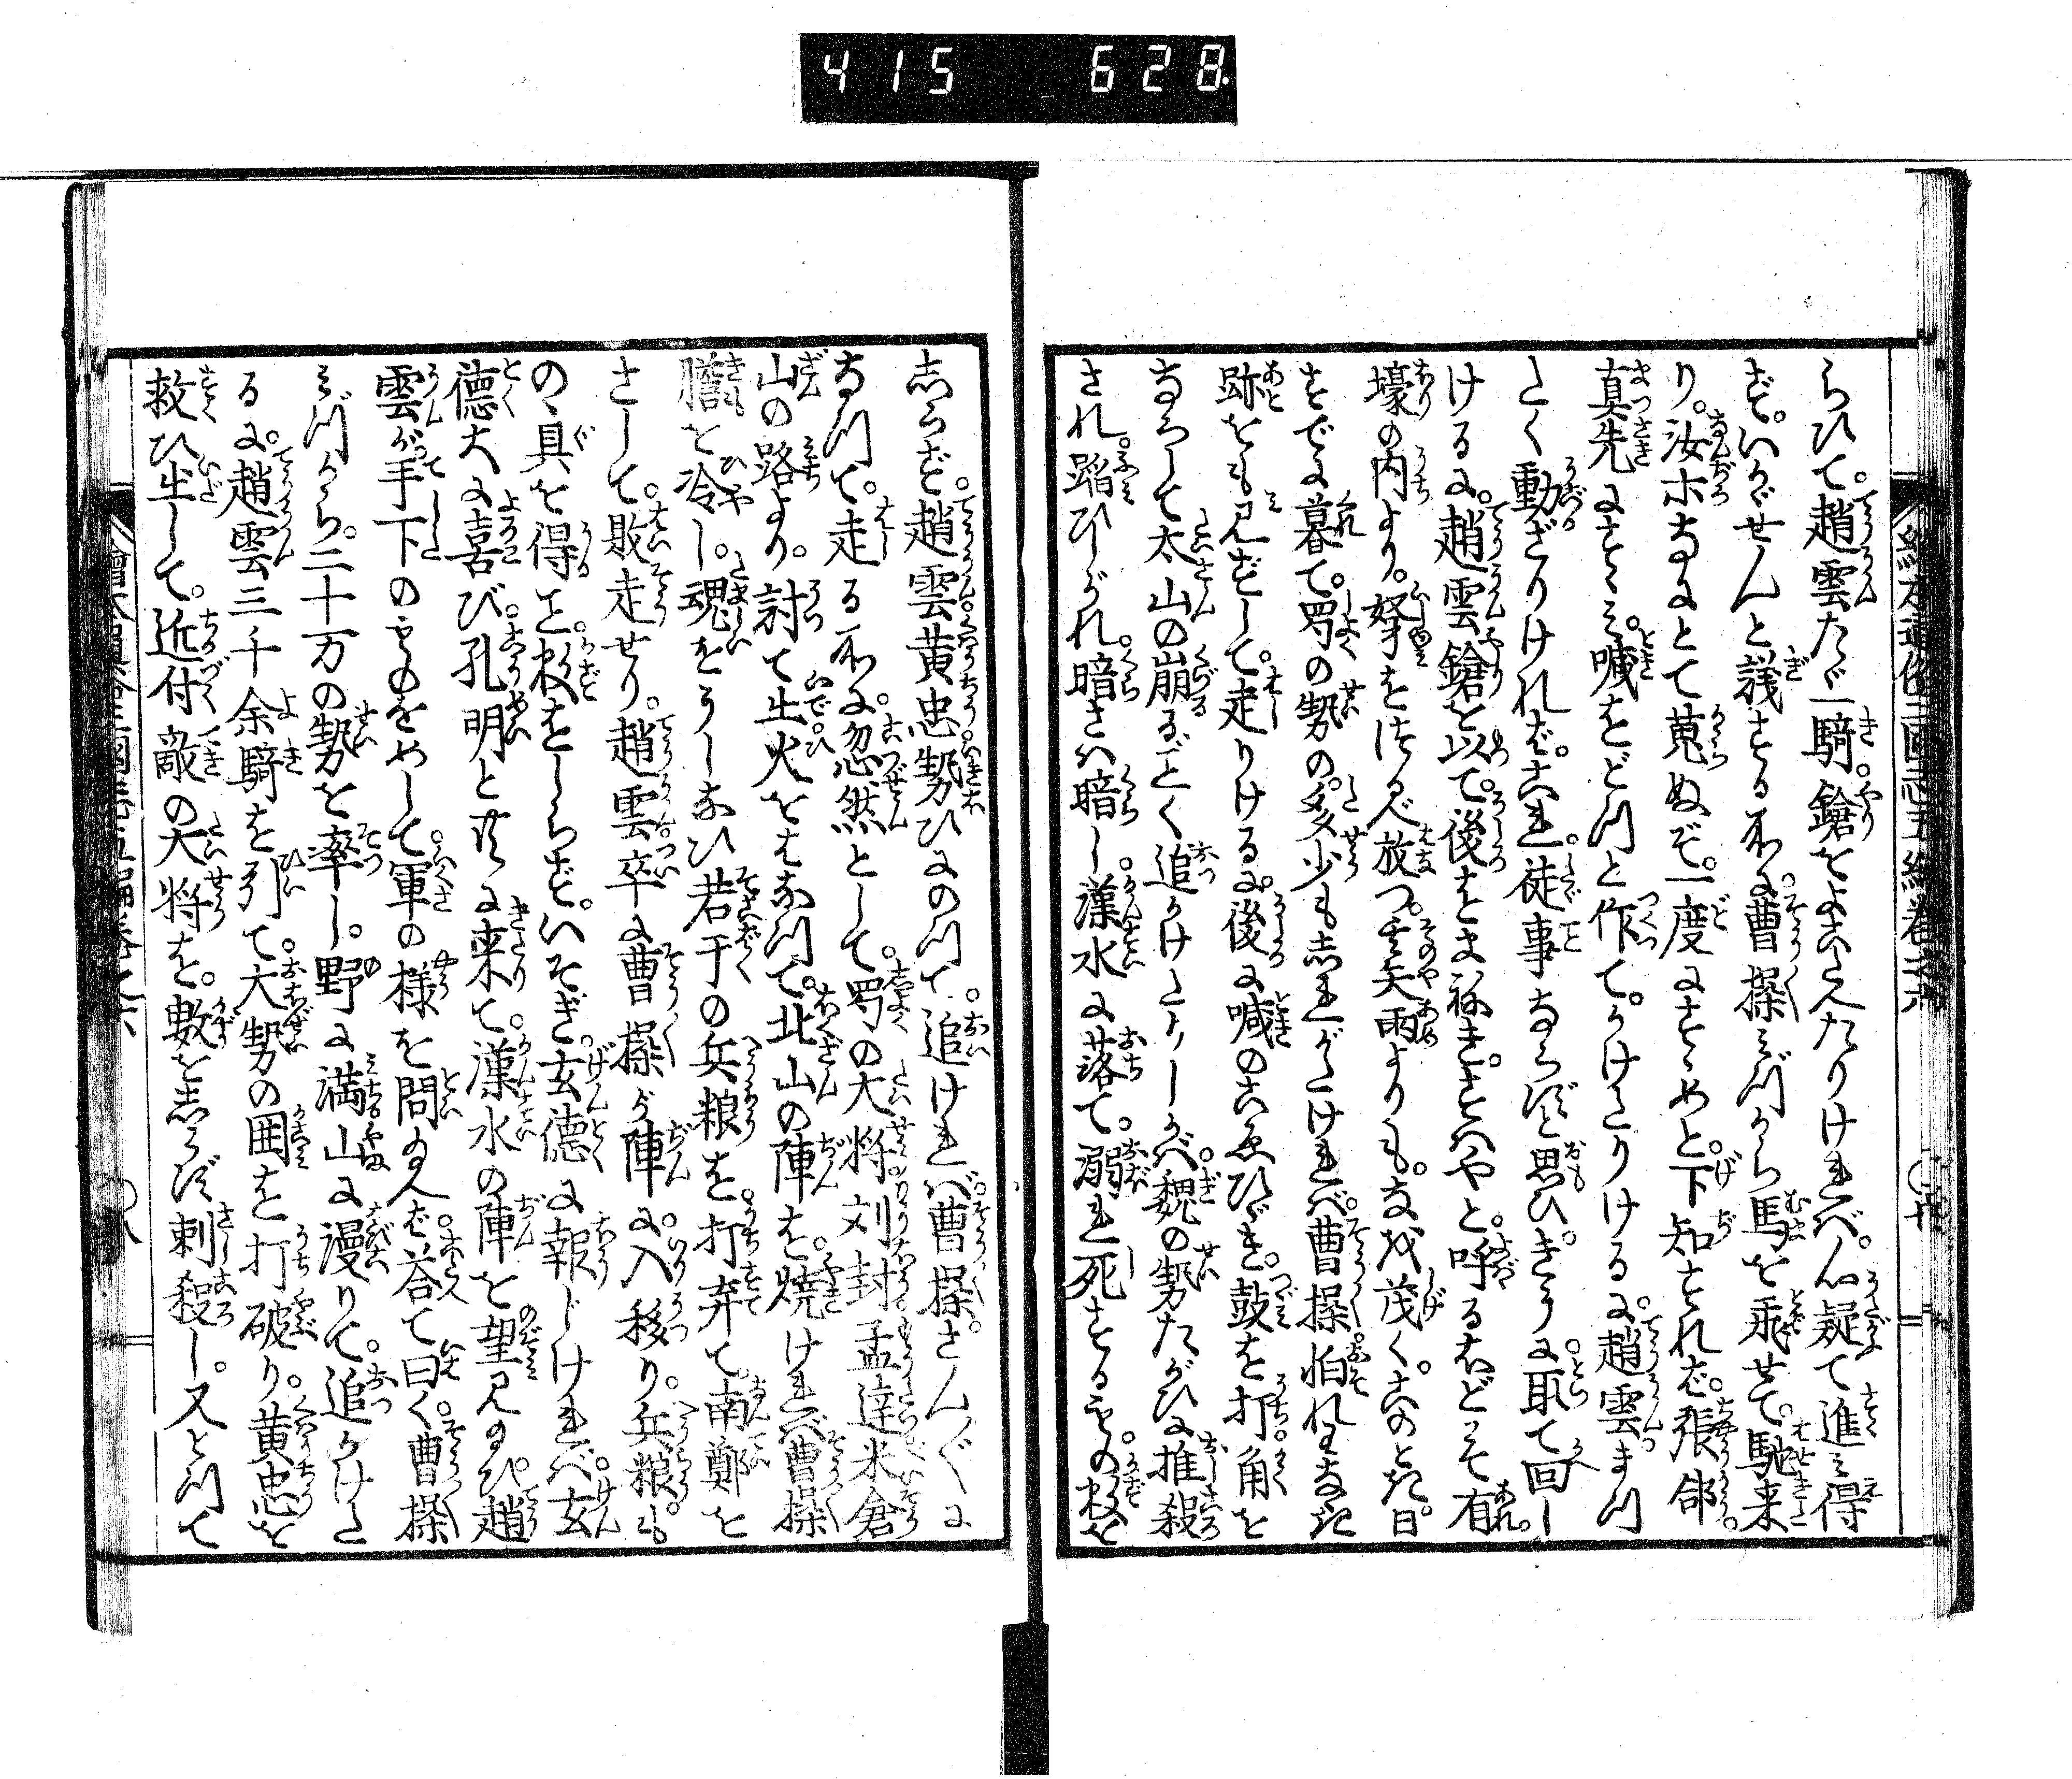 415 628
らひて。趙雲たゞ一騎。鎗をよこたへたりければ。心疑て進み得
ず。いかゞせんと議する所に。曹操みづから馬を乗せて。馳来
り。汝ホなにとて蒐ぬぞ。一度にすゝめと。下知すれば。張郃
真先にすゝみ。喊をどつと作て。かけたりけるに。趙雲まつ
たく動ざりければ。これ徒事ならずと思ひ。きうに取て回し
けるに。趙雲鎗を以て。後をまねき。すはやと。呼るほどこそ有
壕の内より。弩をつるべ放つ。其矢雨よりも。なほ茂く。このとき日
すでに暮て。蜀の勢の。多少も
しれがたければ。曹操怕れをなし
跡をも見ずして。走りけるに。後に喊のこゑひゞき。鼓を打。角を
ならして太山の崩るゞごとく追かけたりしかば。魏の勢たがひに推殺
され。蹈ひしがれ。暗さは暗し。漢水に落て。溺れ死するもの。数を
しらず。趙雲黄忠勢ひにのつて。追ければ。曹操さん〴〵に
なつて。走る所に。忽然として。蜀の大将刘封孟達米倉
山の路より。討て出火をはなつて。北山の陣を。焼ければ曹操
膽を冷し。魂をうしなひ若干の兵粮を。打弃て。南鄭を
さして。敗走せり。趙雲卒に曹操が陣に。入移り。兵粮も。
の具を得こと。数をしらず。いそぎ。玄德に報じければ。玄
德大に喜び。孔明と共に来て。漢水の陣を望見給ひ。趙
雲が手下のものをめして。軍の様を問給へば。答て曰く。曹操
みづから。二十万の勢を率し。野に満山に漫りて。追かけた
るに。趙雲三千余騎を引て。大勢の囲を打破り。黄忠を
救ひ出して。近付敵の大将を。数をしらず刺殺し。又とつて